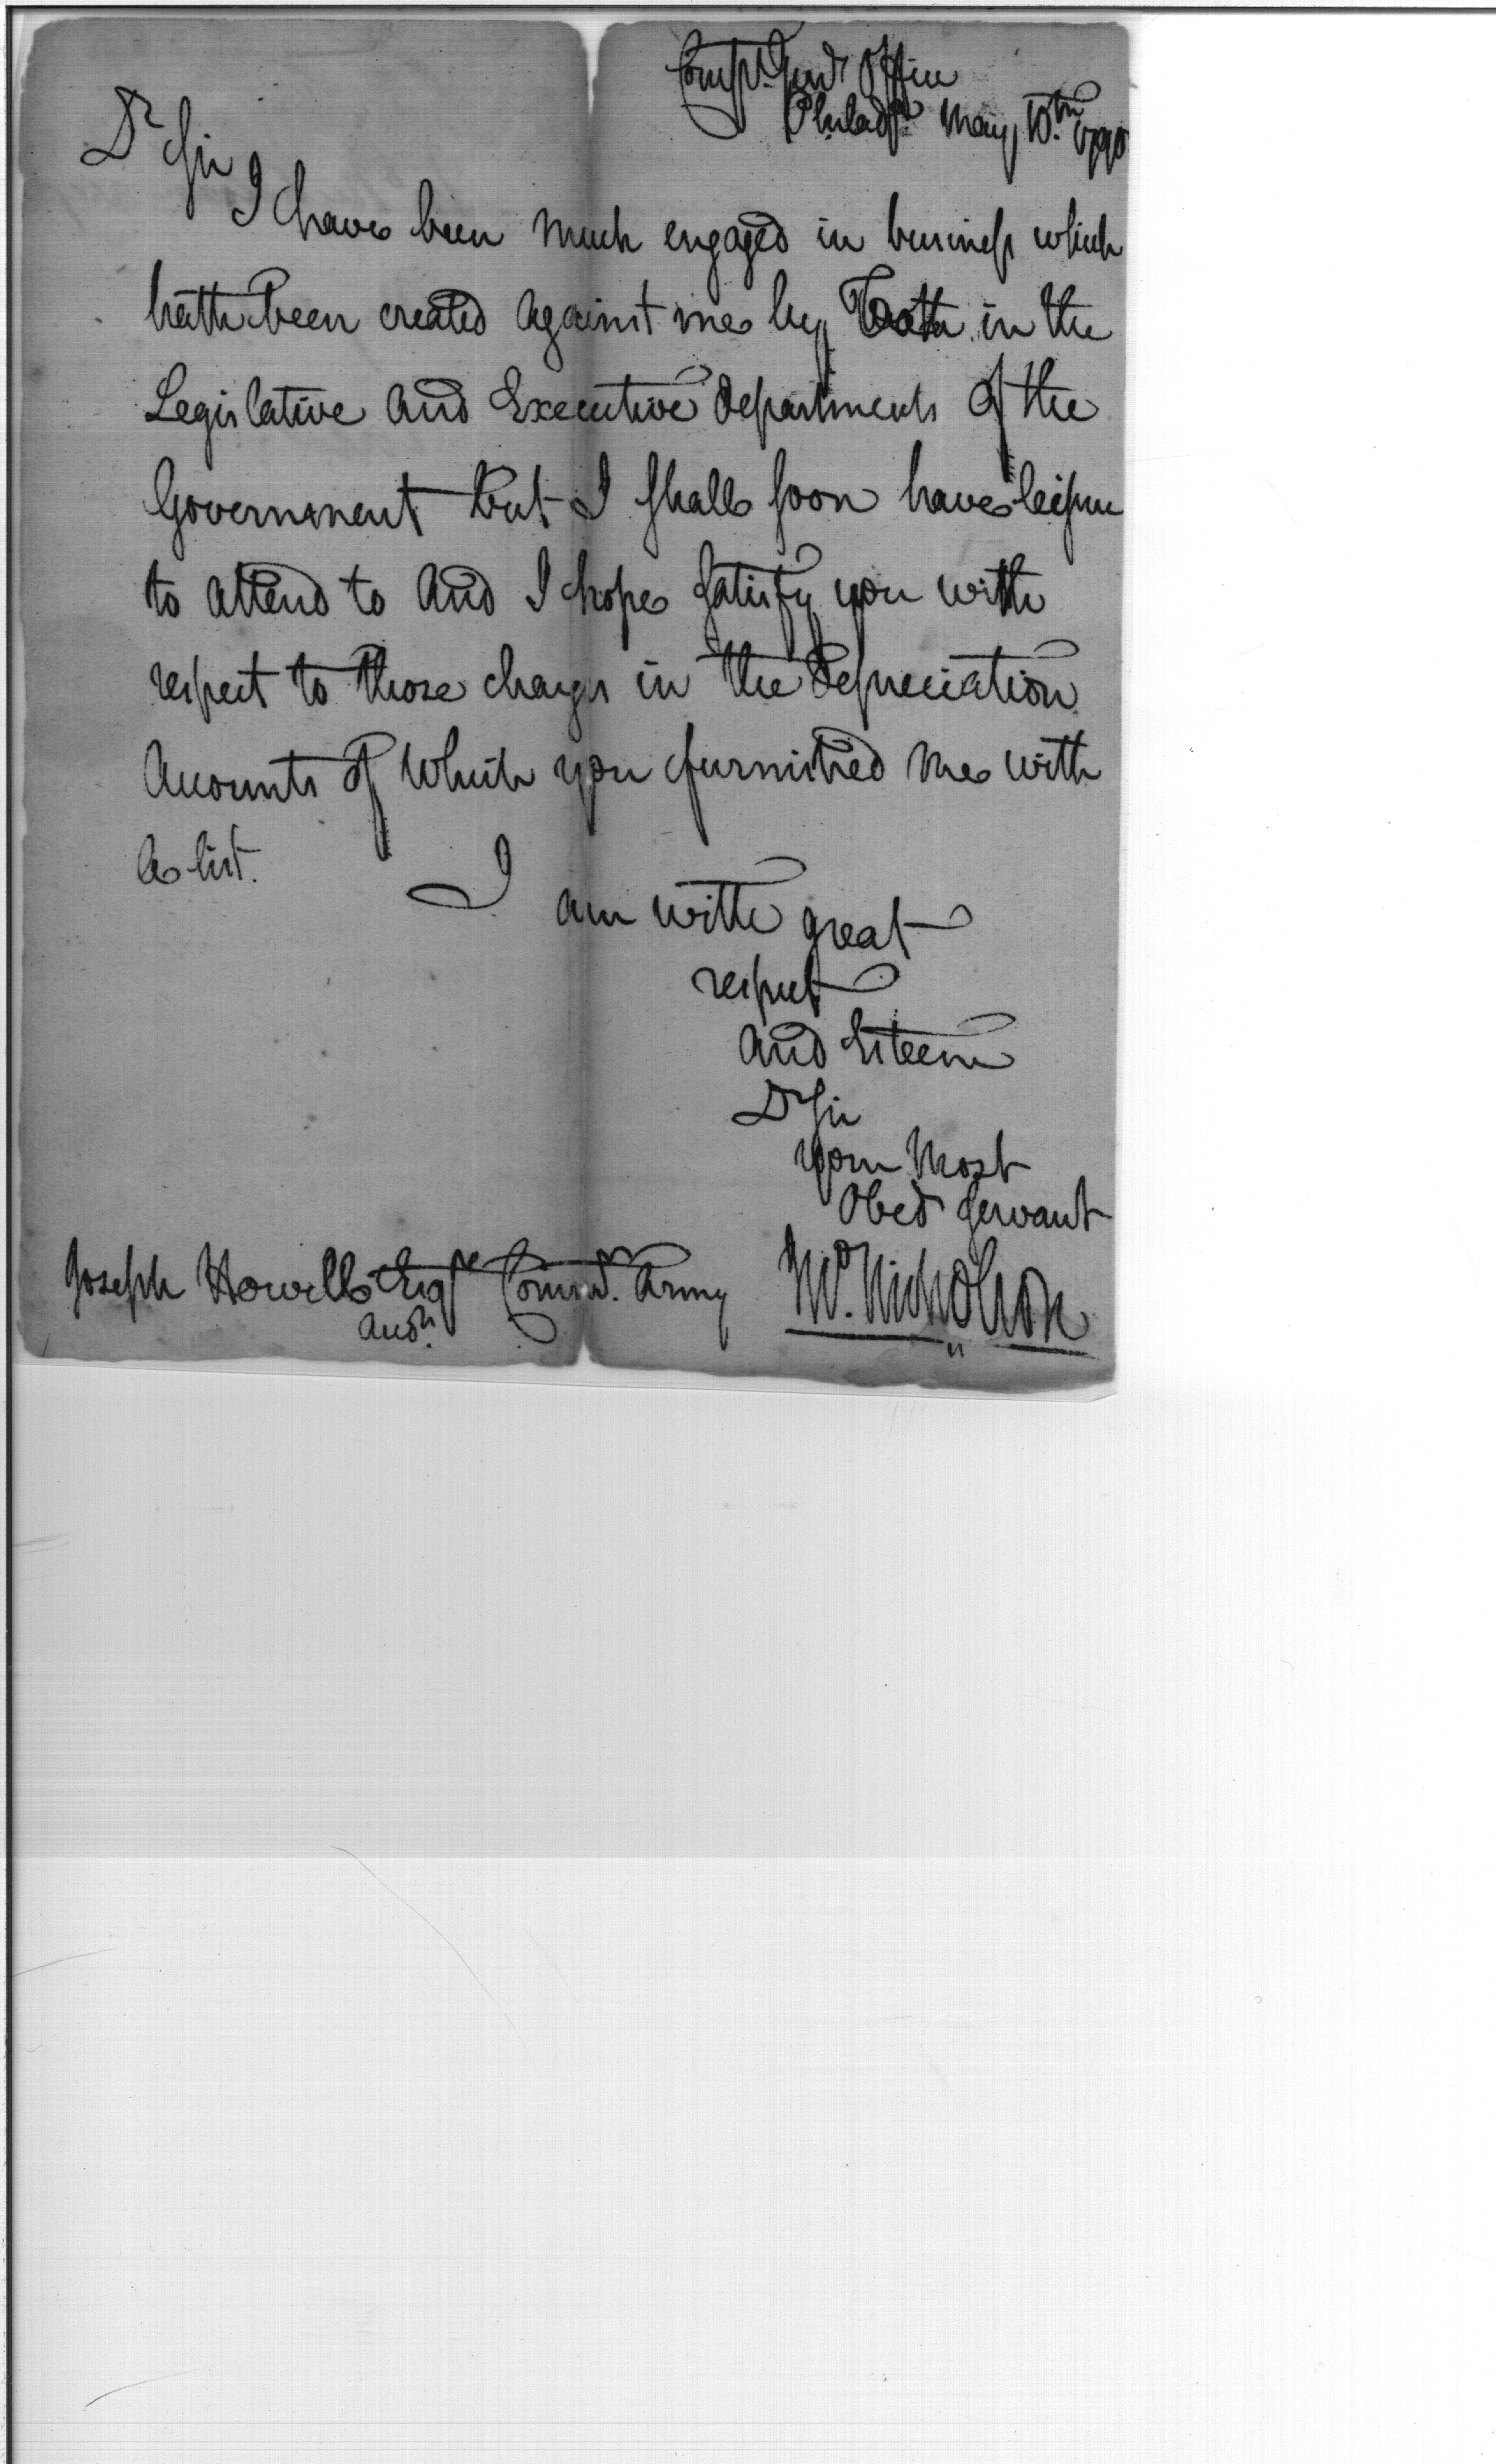 Compt. Genls Office
Philada. May 10th 1790
Dr Sir
I have been much engaged in business which
hath been created against me by both in the
Legislative and Executive departments of the
Government but I shall soon have leisure
to attend to and I hope satisfy you with
respect to those charges in the depreciation
Accounts of which you furnished me with
a list.
I am with great
respect
and Esteem
Dr Sir
your Most
Obed Servant
Jno. Nicholson
Joseph Howell Esqr Commr. Army